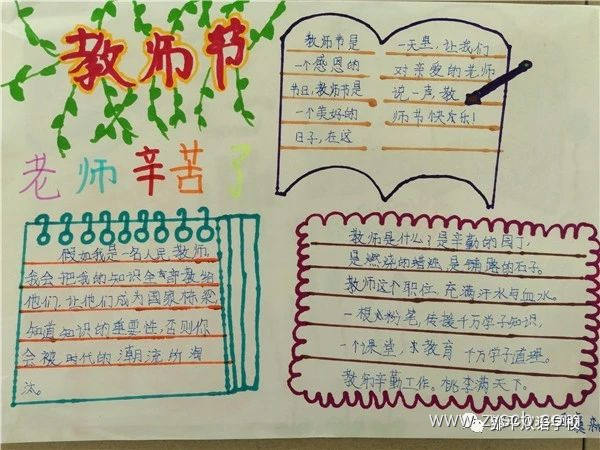 教师节
老师辛苦了
教师节是
一个感恩的
节日,教师节是
一个美好的
日子,在这
一天里,让我们
对亲爱的老师
说一声:教
师节快乐!
假如我是一名人民教师,
我会把我的知识全部教给
他们,让他们成为国家栋梁
知道知识的重要性,否则你
会被时代的潮流所淘
汰。
教师是什么?是辛勤的园丁,
是燃烧的蜡烛,是铺路的石子。
教师这个职位,充满汗水与血水。
一根粉笔,传授千万学子知识,
一个课堂,教育千万学子道理。
教师辛勤工作。桃李满天下。
www.zyscb.com